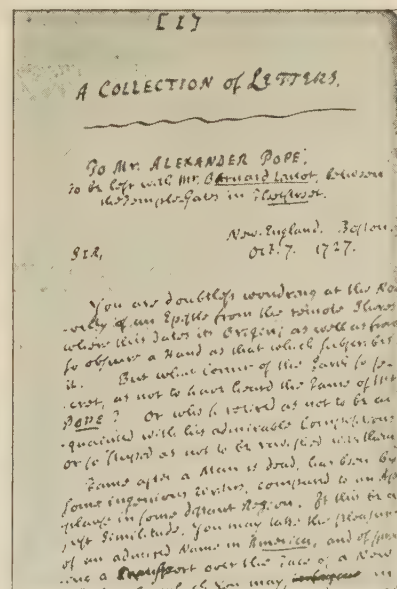 [1]
A COLLECTION of LETTERS.
To Mr. ALEXANDER POPE;
to be left with Mr. Bernard Lintot, between
the Temple Gates in Fleetstreet.
New-England. Boston.
Oct. 7. 1727.
SIR,
You are doubtless wondring at the No-
-velty of an Epistle from the remote Shores
where this dates its Origin; as well as from
so obscure a Hand as that which subscribes
it. But what Corner of the Earth so se-
-cret, as not to have heard the Fame of Mr.
POPE? Or who so retired as not to be ac-
-quainted with his admirable Compositions
or so stupid as not to be ravished with them
Fame after a Man is dead, has been by
some ingenious writers, compared to an Ap-
plause in some distant Region. If this be a
just Similitude, you may take the pleasure
of an admired Name in America, and of
-ing a Transport over the Face of a New
you may, in